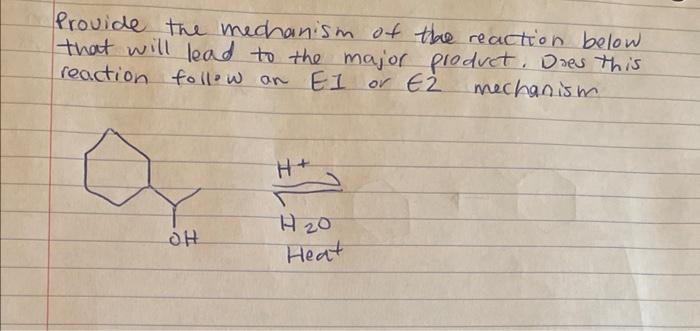 Provide the mechanism of the reaction below
that will lead to the major product. Does this
reaction follow an E1 or E2 mechanism
H+
OH
H2O
Heat